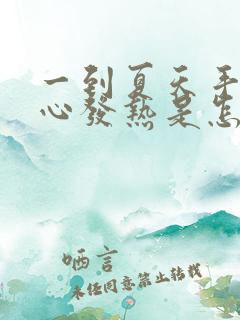 一到夏天手
心發熱是怎
哂言
未任同意禁止转载